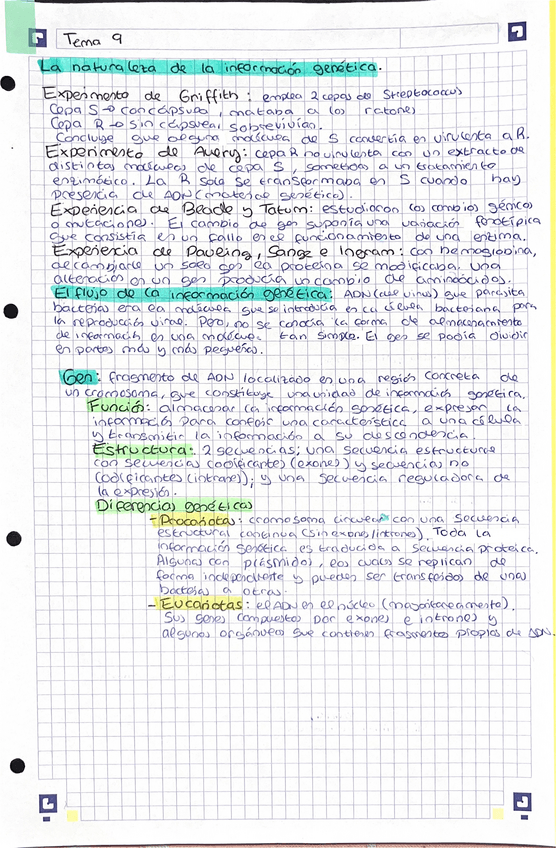 Tema 9
La naturaleza de la información genética.
Experimento de Griffith: emplea 2 cepas de Streptococcus
Cepa S → con cápsulas, mataba a los ratones
Cepa R → sin cápsulas, sobrevivían.
Concluye que alguna molécula de S convertía en virulenta a R.
Experimento de Avery: cepa R no virulenta con un extracto de
distintas moléculas de cepa S, sometidas a un tratamiento
enzimático. La R solo se transformaba en S cuando hay
presencia de ADN (material genético).
Experiencia de Beadle y Tatum: estudiaron los cambios génicos
o mutaciones. El cambio de gen suponía una variación fenotípica
que consistía en un fallo en el funcionamiento de una enzima.
Experiencia de Paueing, Sange e Ingram: con hemoglobina,
de cambiarle un solo gen la proteína se modificaba. una
alteración en un gen producía un cambio de aminoácidos.
El flujo de la información genética: ADN (del virus) que parasita
bacterias era la molécula que se introducía en la célula bacteriana para
la reproducción viral. Pero, no se conocía la forma de almacenamiento
de información en una molécula tan simple. El gen se podía dividir
en partes más y más pequeñas.
Gen: fragmento de ADN localizado en una región concreta de
un cromosoma, que constituye una unidad de información genética.
Función: almacenar la información genética, expresar la
información para conferir una característica a una célula
y transmitir la información a su descendencia.
Estructura: 2 secuencias; una secuencia estructural
con secuencias codificantes (exones) y secuencias no
codificantes (intrones); y una secuencia reguladora de
la expresión.
Diferencias genéticas
- Procariotas: cromosoma circular con una secuencia
estructural continua (sin exones/intrones). Toda la
información genética es traducida a secuencia proteica.
Algunas con plásmidos, los cuales se replican de
forma independiente y pueden ser transferidos de unas
bacterias a otras.
- Eucariotas: el ADN en el núcleo (mayoritariamente).
Sus genes compuestos por exones e intrones y
algunos orgánulos que contienen fragmentos propios de ADN.